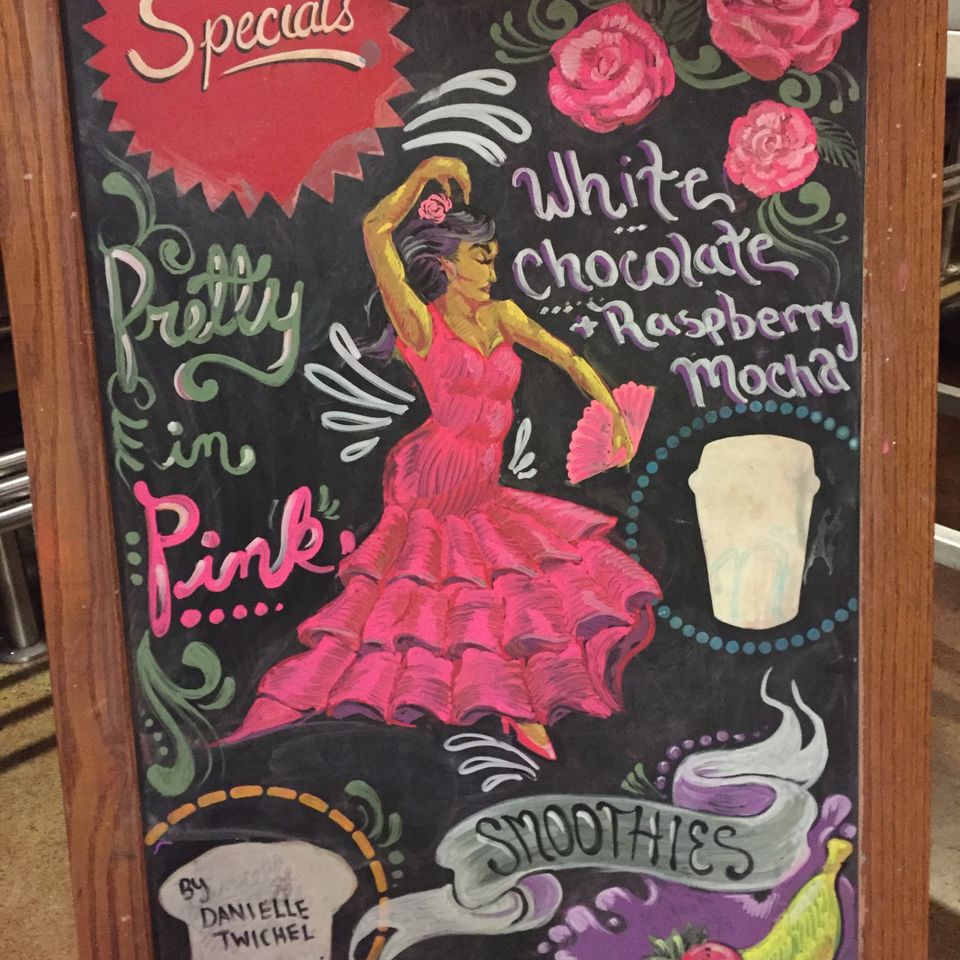 Specials
Pretty
in
Pink
White
Chocolate
+ Raspberry
Mocha
SMOOTHIES
BY
DANIELLE
TWICHEL